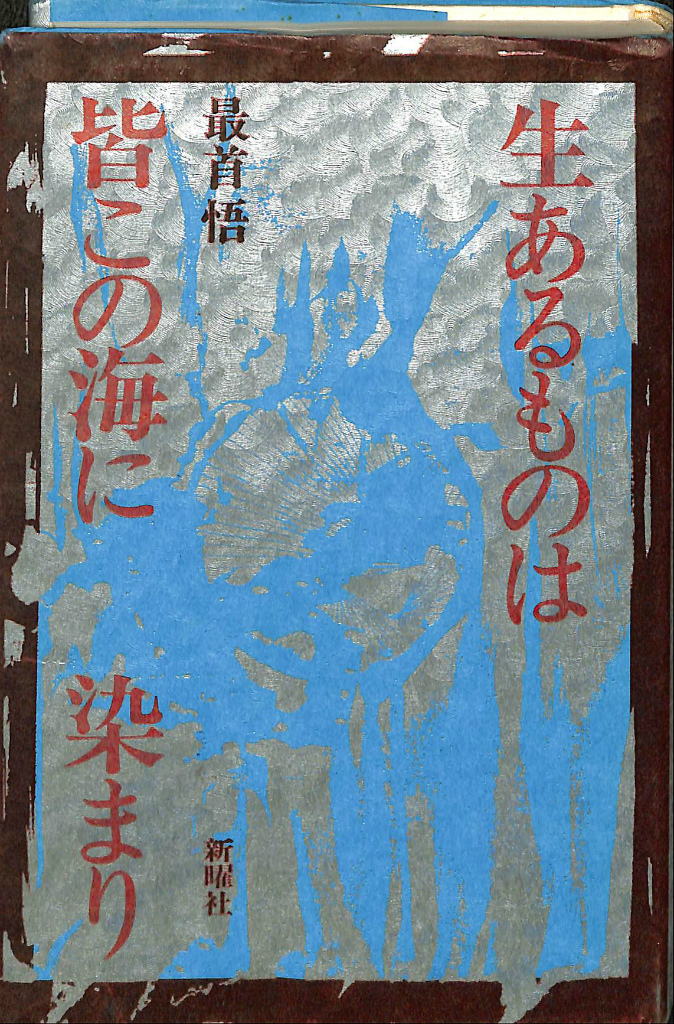 生あるものは
皆この海に
染まり
最首悟
新曜社